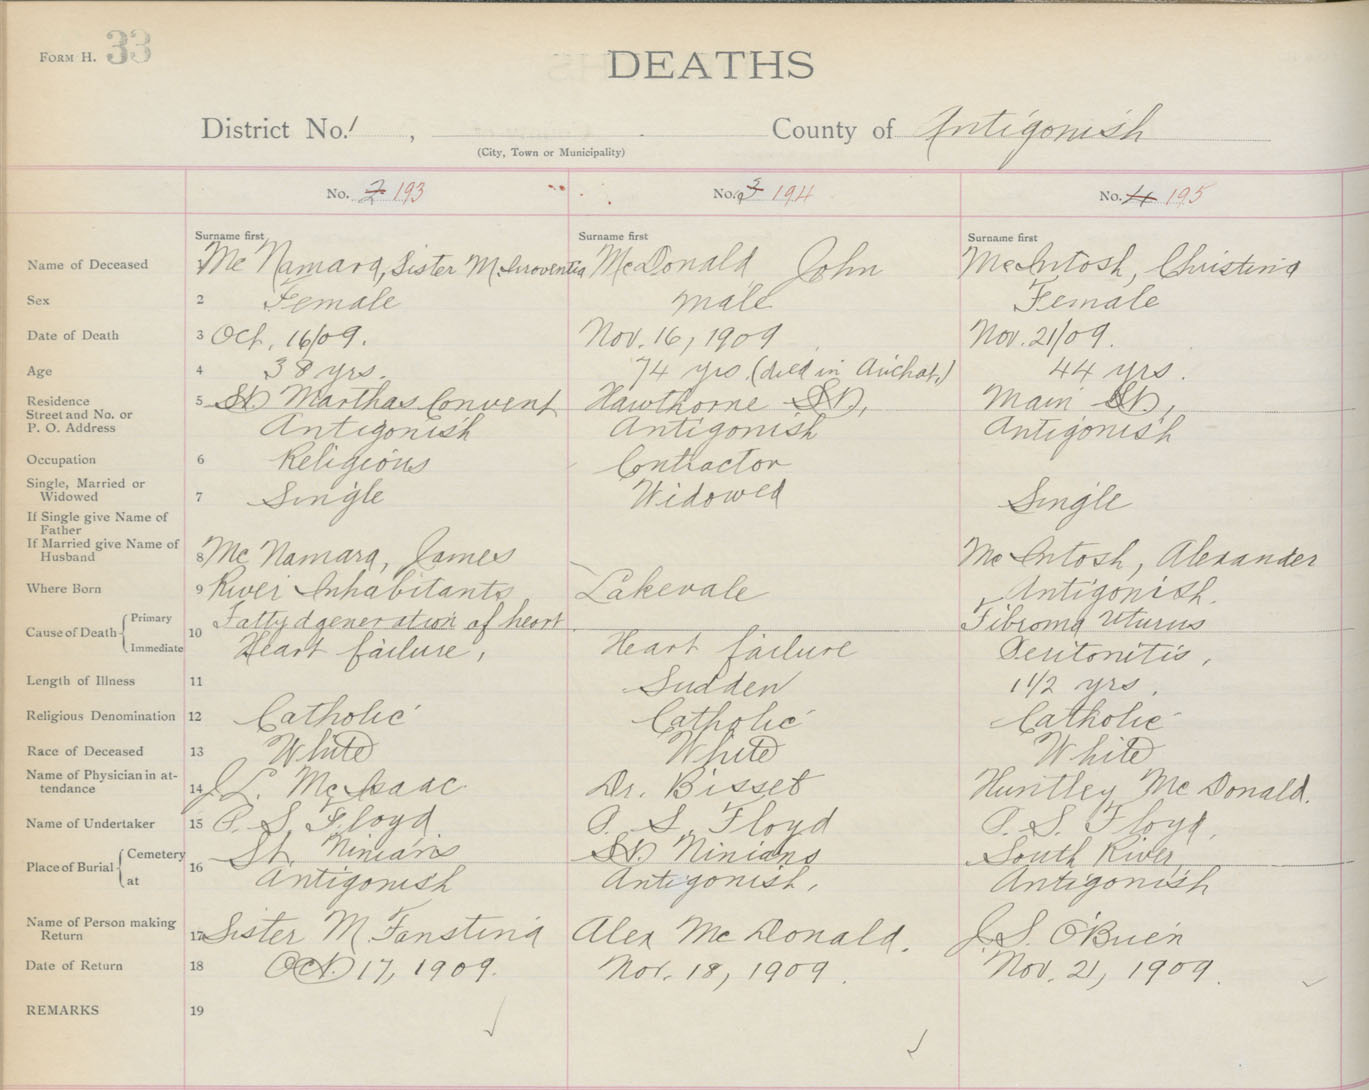 FORM H. 33
DEATHS
District No. 1 , County of Antigonish
(City, Town or Municipality)
No. 2 193 No. 3 194 No. 4 195
Surname first Surname first Surname first
Name of Deceased 1 Mc Namara, Sister M. McDonald John McIntosh, Christina
Sex 2 Female Male Female
Date of Death 3 Oct. 16/09. Nov. 16, 1909 Nov. 21/09.
Age 4 38 yrs. 74 yrs (died in Arichat) 44 yrs.
Residence 5 St Marthas Convent Hawthorne St, Main St,
Street and No. or
P. O. Address Antigonish Antigonish Antigonish
Occupation 6 Religious Contractor
Single, Married or
Widowed 7 Single Widowed Single
If Single give Name of
Father
If Married give Name of
Husband 8 Mc Namara, James McIntosh, Alexander
Where Born 9 River Inhabitants Lakevale Antigonish.
Cause of Death Primary 10 Fatty dgeneration of heart Fibroma Uturus
Immediate Heart failure, Heart failure Peritonitis,
Length of Illness 11 Sudden 1 1/2 yrs.
Religious Denomination 12 Catholic Catholic Catholic
Race of Deceased 13 White White White
Name of Physician in at-
tendance 14 J.L. McIsaac Dr. Bisset Huntley McDonald.
Name of Undertaker 15 P. S. Floyd P. S. Floyd P. S. Floyd,
Place of Burial Cemetery 16 St. Ninians St Ninians South River,
at Antigonish Antigonish, Antigonish
Name of Person making
Return 17 Sister M. Fanstina Alex McDonald. J.S. O'Brien
Date of Return 18 Oct 17, 1909. Nov. 18, 1909. Nov. 21, 1909.
REMARKS 19